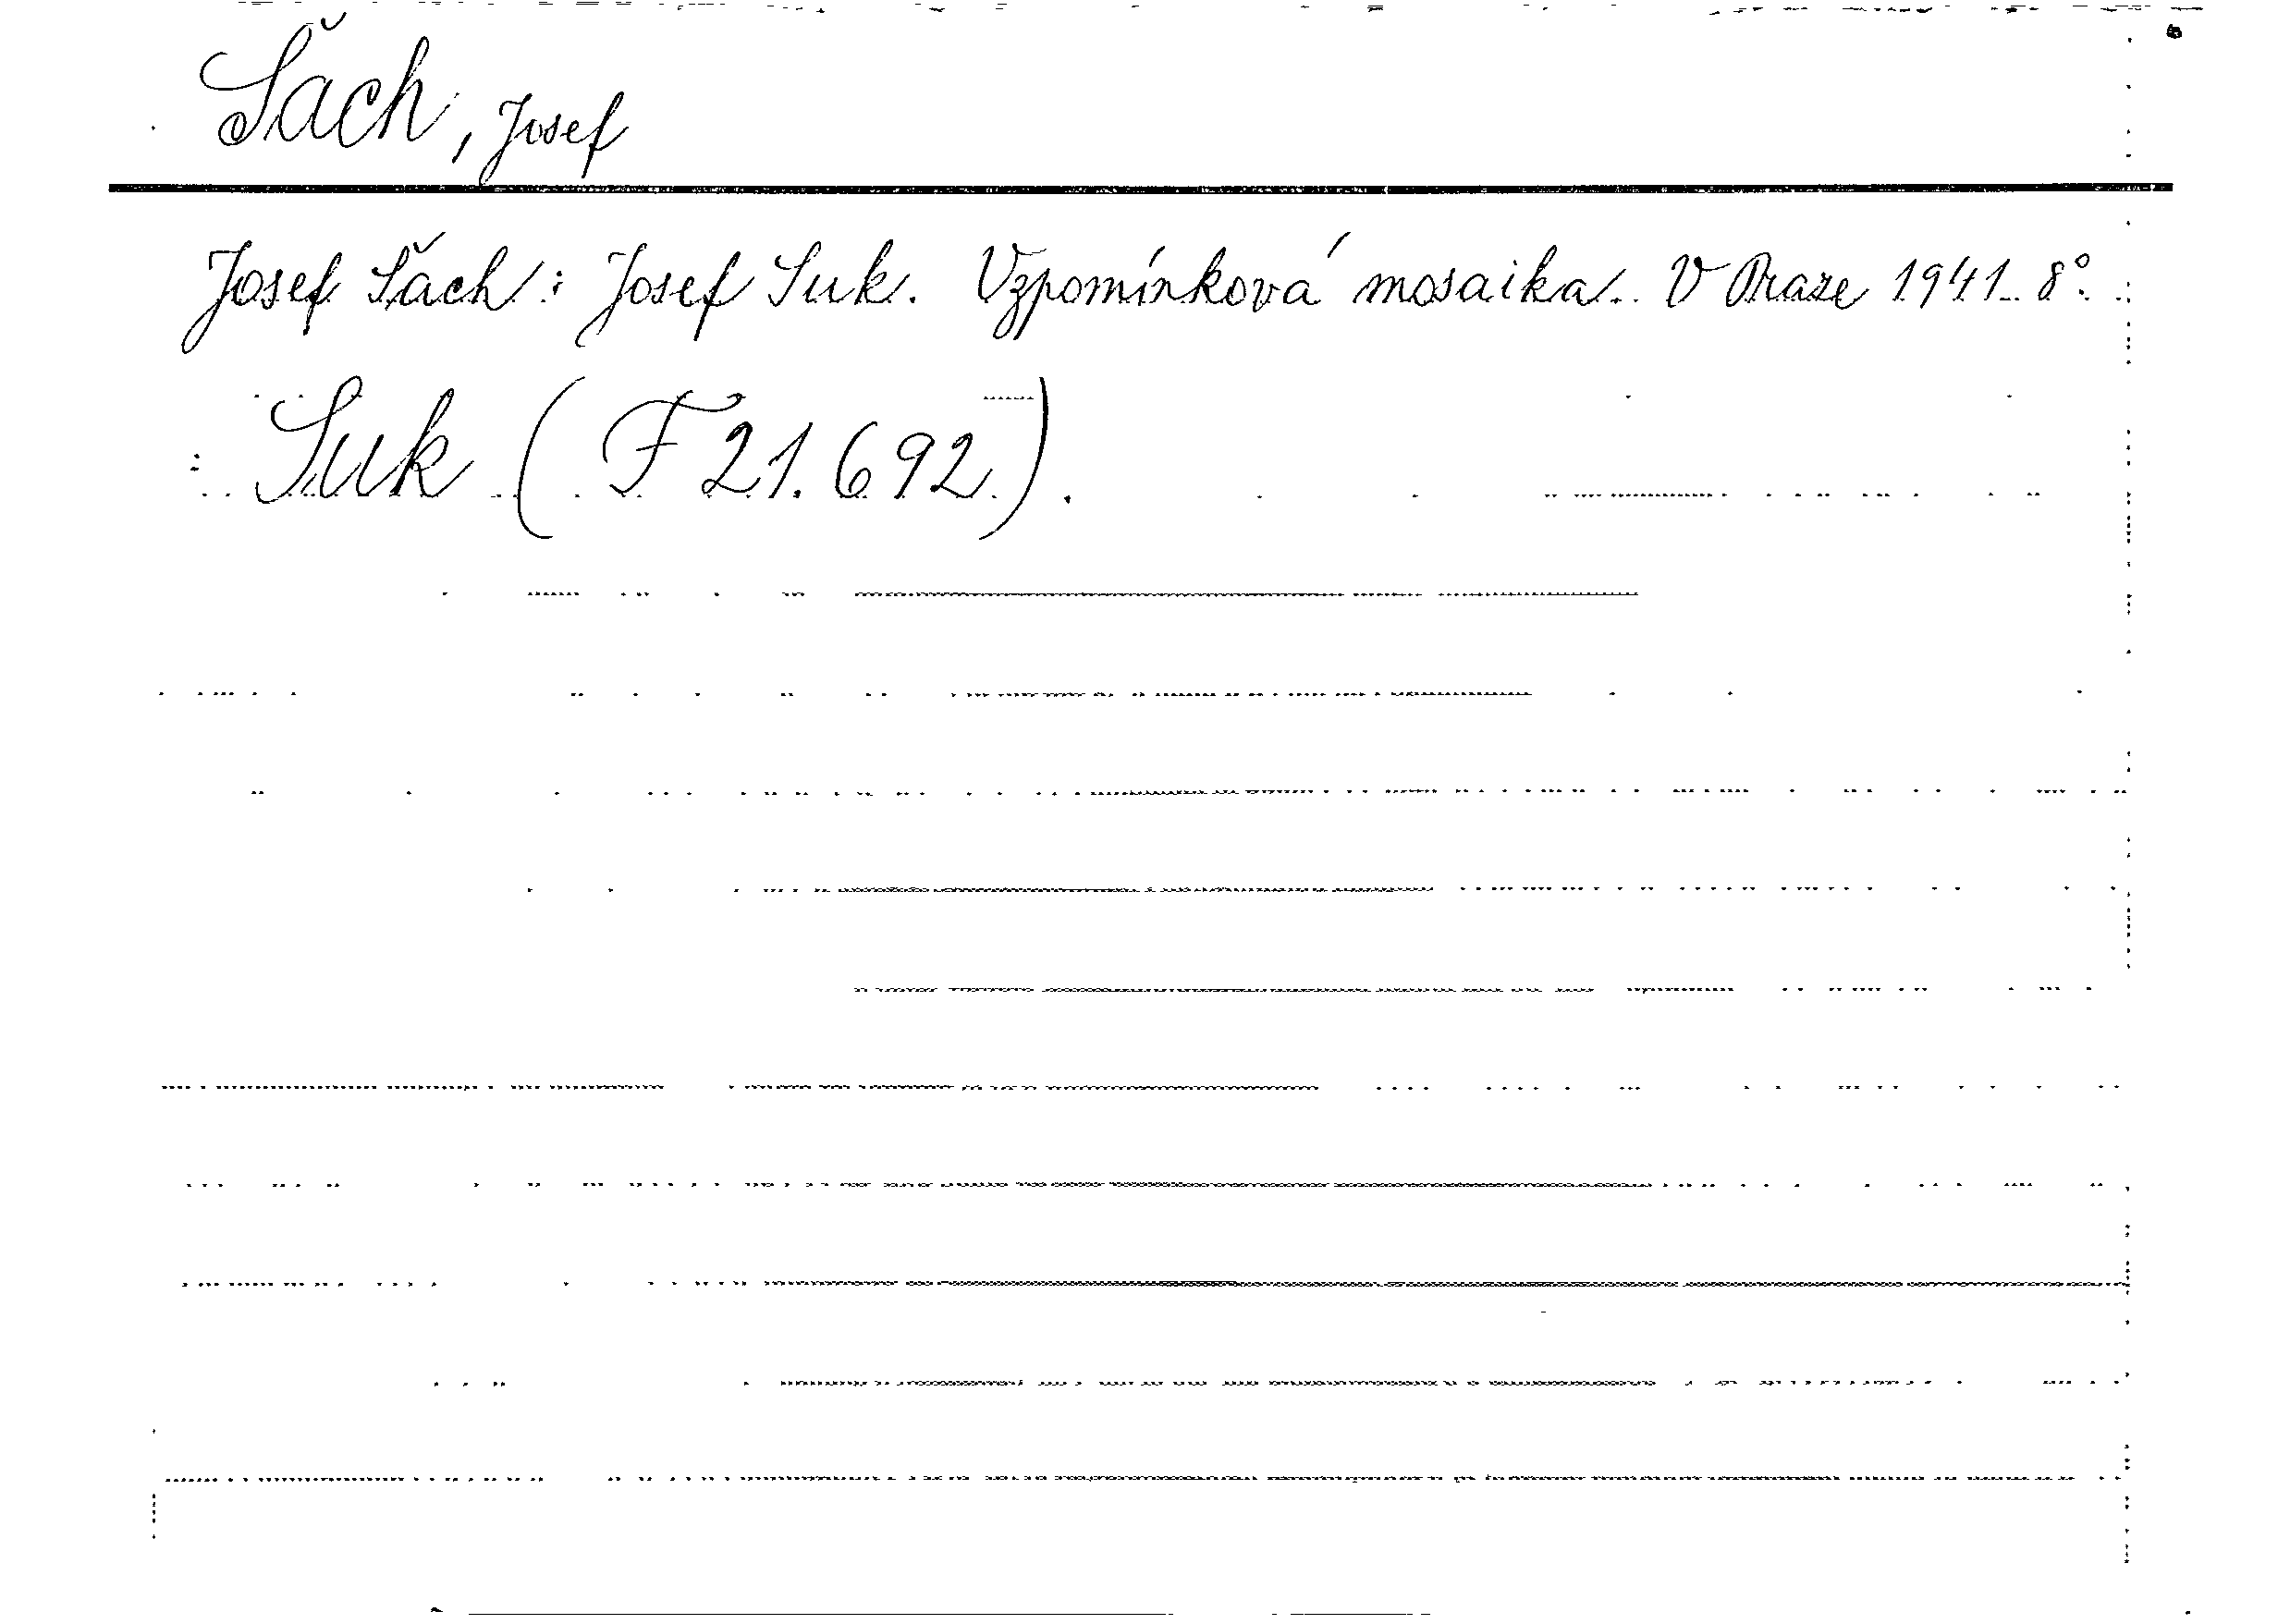 Šach, Josef
Josef Šach: Josef Suk. Vzpomínková mosaika. V Praze 1941. 8°.
Suk (F 21.692).